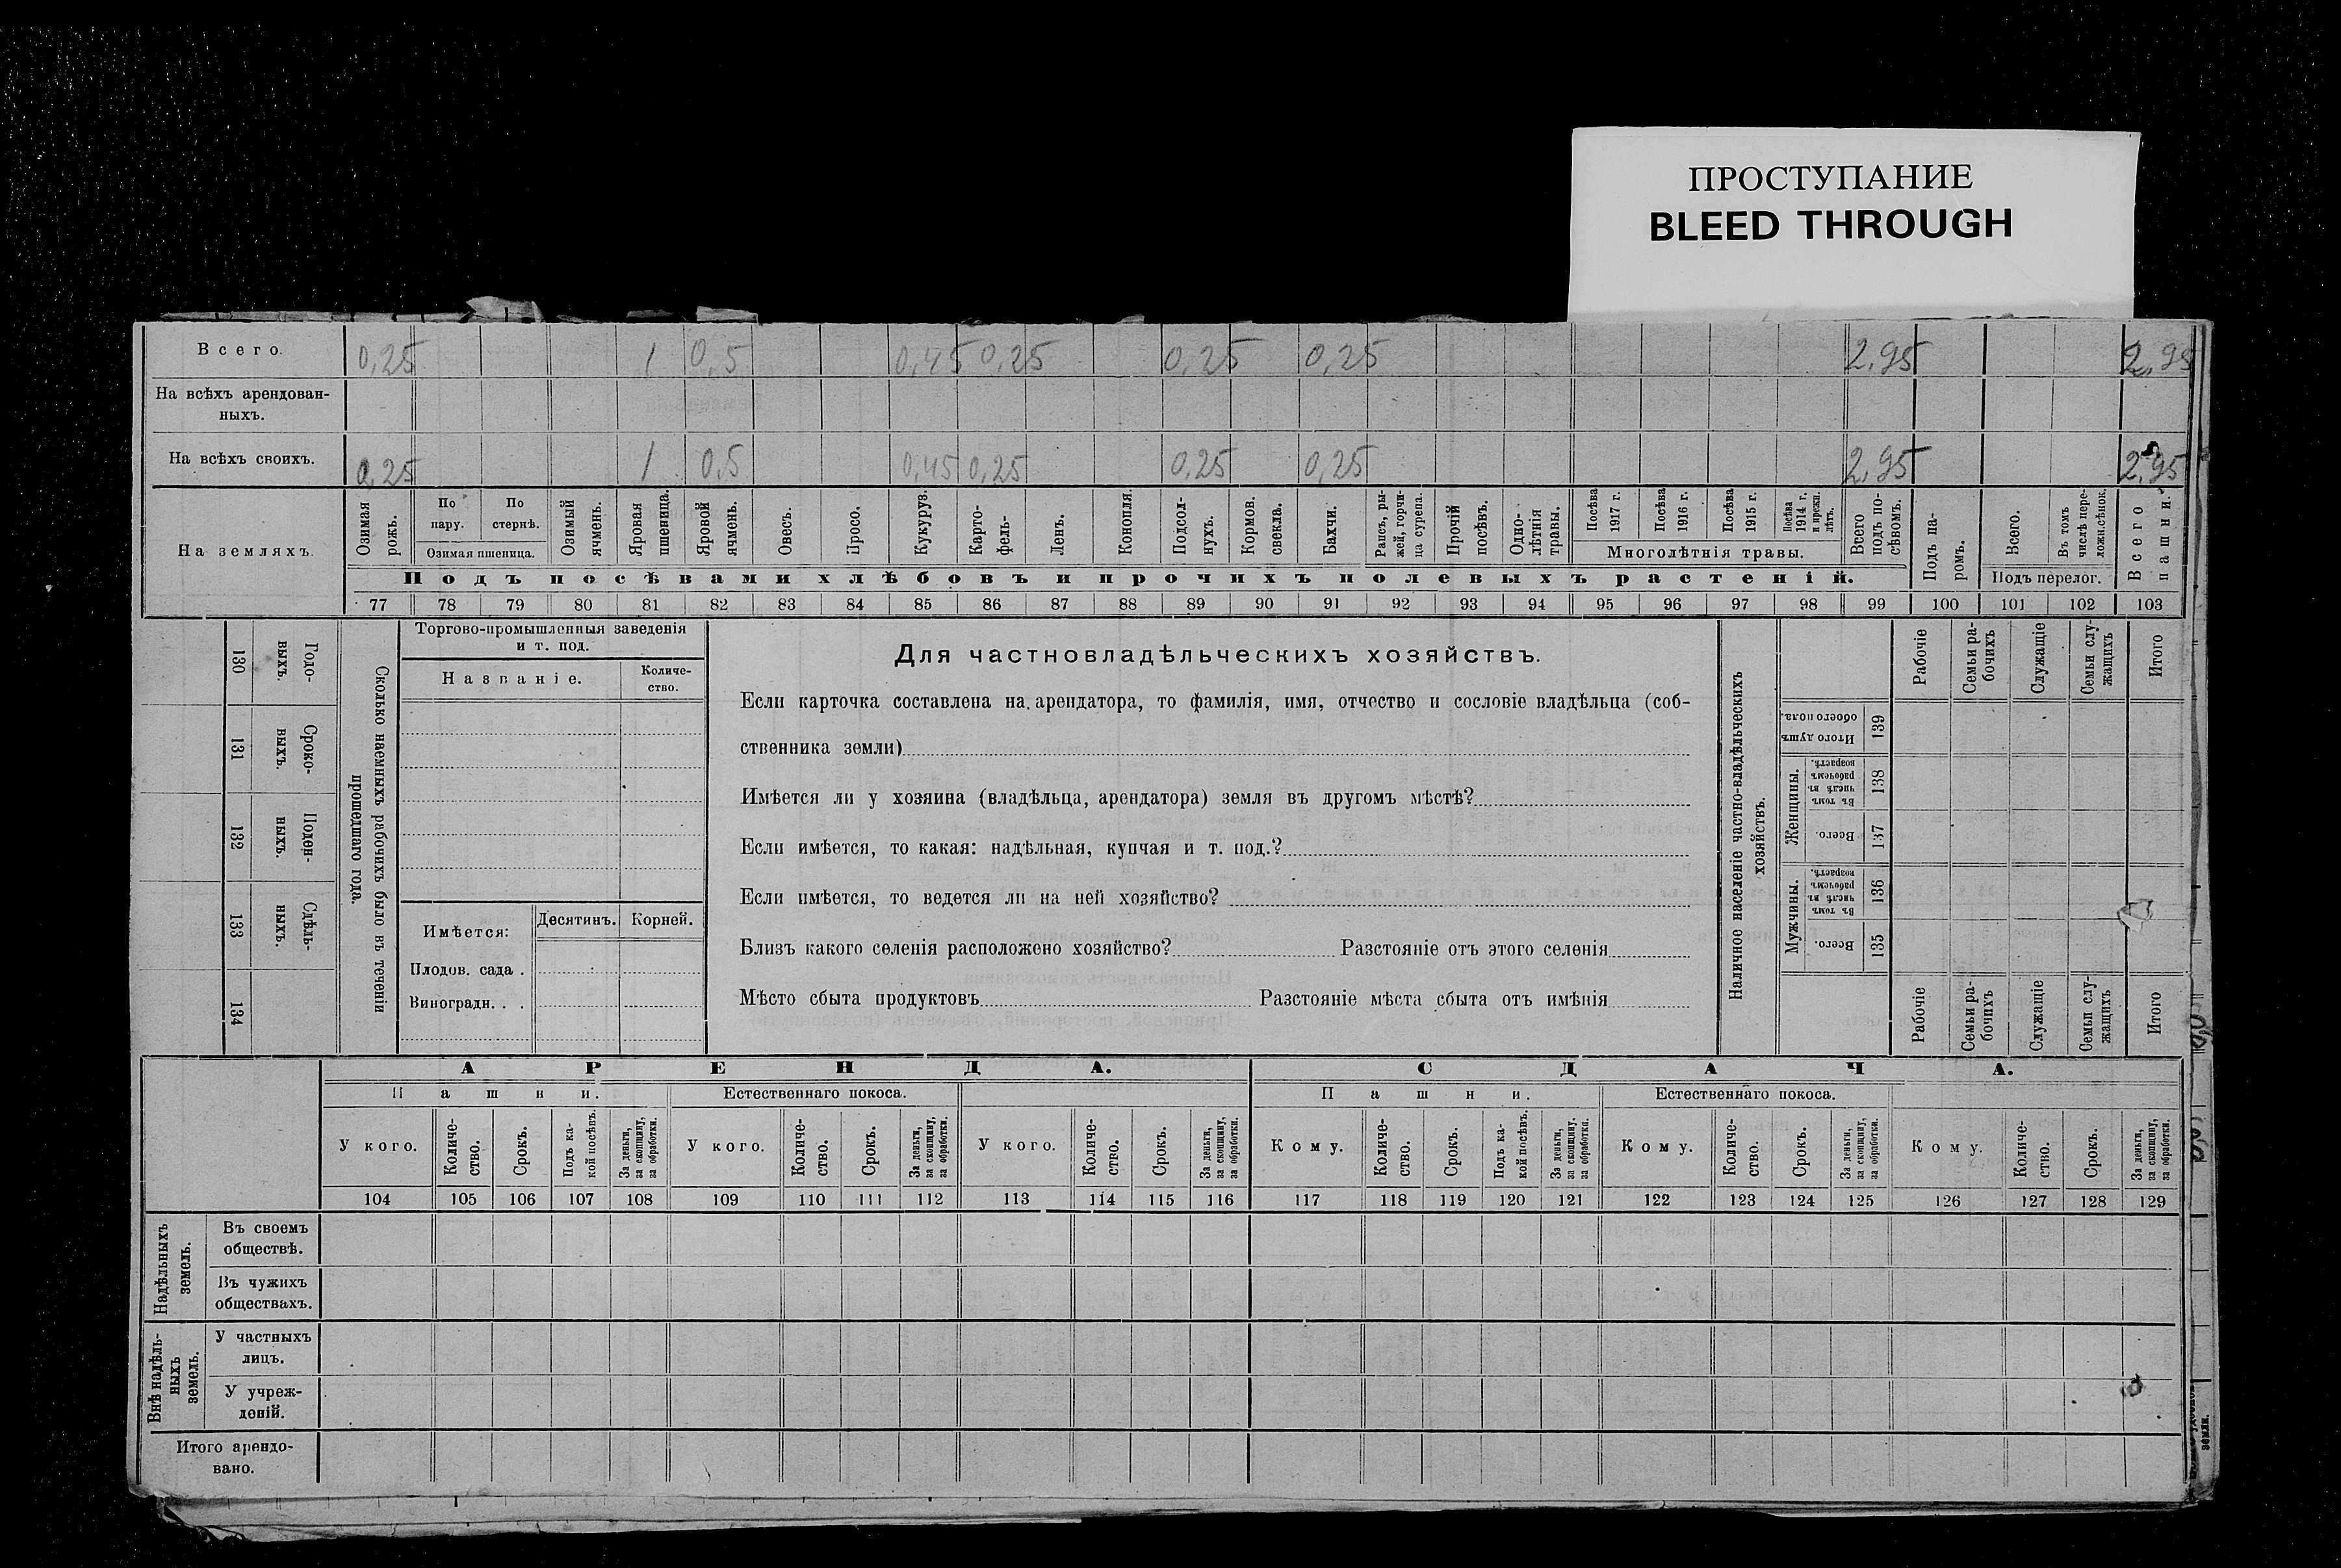 ПРОСТУПАНИЕ
BLEED THROUGH
Всего. 0,25 1 0,5 0,45 0,25 0,25 0,25 2,95 2,95
На всѣхъ арендован-
ныхъ.
На всѣхъ своихъ. 0,25 1 0,5 0,45 0,25 0,25 0,25 2,95 2,95
На земляхъ.
Озимая рожь.
По пару.
По стернѣ.
Озимая пшеница.
Озимый ячмень.
Яровая пшеница.
Яровой ячмень.
Овесъ.
Просо.
Кукуруз.
Карто-
фель-
Ленъ.
Конопля.
Подсол-
нухъ.
Кормов.
свекла.
Бахчи.
Рапсъ, ры-
жей, горчи-
ца сурепа.
Прочій
посѣвъ.
Одно-
лѣтнія
травы.
Посѣва
1917 г.
Посѣва
1916 г.
Посѣва
1915 г.
Посѣва
1914 г.
и прежн.
лѣтъ.
Многолѣтнія травы.
Всего
подъ по-
сѣвомъ.
Подъ па-
ромъ.
Всего.
Въ томъ
числѣ пере-
ложн.сѣнок.
Подъ перелог.
Всего
пашни.
Подъ посѣвами хлѣбовъ и прочихъ полевыхъ растеній.
77 78 79 80 81 82 83 84 85 86 87 88 89 90 91 92 93 94 95 96 97 98 99 100 101 102 103
130 Годо-
выхъ.
131 Сроко-
выхъ.
132 Поден-
ныхъ.
133 Сдѣль-
ныхъ.
134
Сколько наемныхъ рабочихъ было въ теченіи
прошедшаго года.
Торгово-промышленныя заведенія
и т. под.
Названіе.
Количе-
ство.
Имѣется:
Десятинъ. Корней.
Плодов. сада .
Виноградн. . .
Для частновладѣльческихъ хозяйствъ.
Если карточка составлена на арендатора, то фамилія, имя, отчество и сословіе владѣльца (соб-
ственника земли)
Имѣется ли у хозяина (владѣльца, арендатора) земля въ другомъ мѣстѣ?
Если имѣется, то какая: надѣльная, купчая и т. под.?
Если имѣется, то ведется ли на ней хозяйство?
Близъ какого селенія расположено хозяйство? Разстояніе отъ этого селенія
Мѣсто сбыта продуктовъ Разстояніе мѣста сбыта отъ имѣнія
Наличное населеніе частно-владѣльческихъ
хозяйствъ.
Рабочіе
Семьи ра-
бочихъ
Служащіе
Семьи слу-
жащихъ
Итого
Итого душъ
обоего пола.
139
Женщины.
Въ томъ
числѣ въ
рабочемъ
возрастѣ.
138
Всего.
137
Мужчины.
Въ томъ
числѣ въ
рабочемъ
возрастѣ.
136
Всего.
135
Рабочіе
Семьи ра-
бочихъ
Служащіе
Семьи слу-
жащихъ
Итого
АРЕНДА. СДАЧА.
Пашни. Естественнаго покоса. Пашни. Естественнаго покоса.
У кого.
Количе-
ство.
Срокъ.
Подъ ка-
кой посѣвъ.
За деньги,
за скопщину,
за обработки.
У кого.
Количе-
ство.
Срокъ.
За деньги,
за скопщину,
за обработки.
У кого.
Количе-
ство.
Срокъ.
За деньги,
за скопщину,
за обработки.
Кому.
Количе-
ство.
Срокъ.
Подъ ка-
кой посѣвъ.
За деньги,
за скопщину,
за обработки.
Кому.
Количе-
ство.
Срокъ.
За деньги,
за скопщину,
за обработки.
Кому.
Количе-
ство.
Срокъ.
За деньги,
за скопщину,
за обработки.
104 105 106 107 108 109 110 111 112 113 114 115 116 117 118 119 120 121 122 123 124 125 126 127 128 129
Надѣльныхъ
земель.
Въ своемъ
обществѣ.
Въ чужихъ
обществахъ.
Внѣ надѣль-
ныхъ
земель.
У частныхъ
лицъ.
У учреж-
деній.
Итого арендо-
вано.
земли.